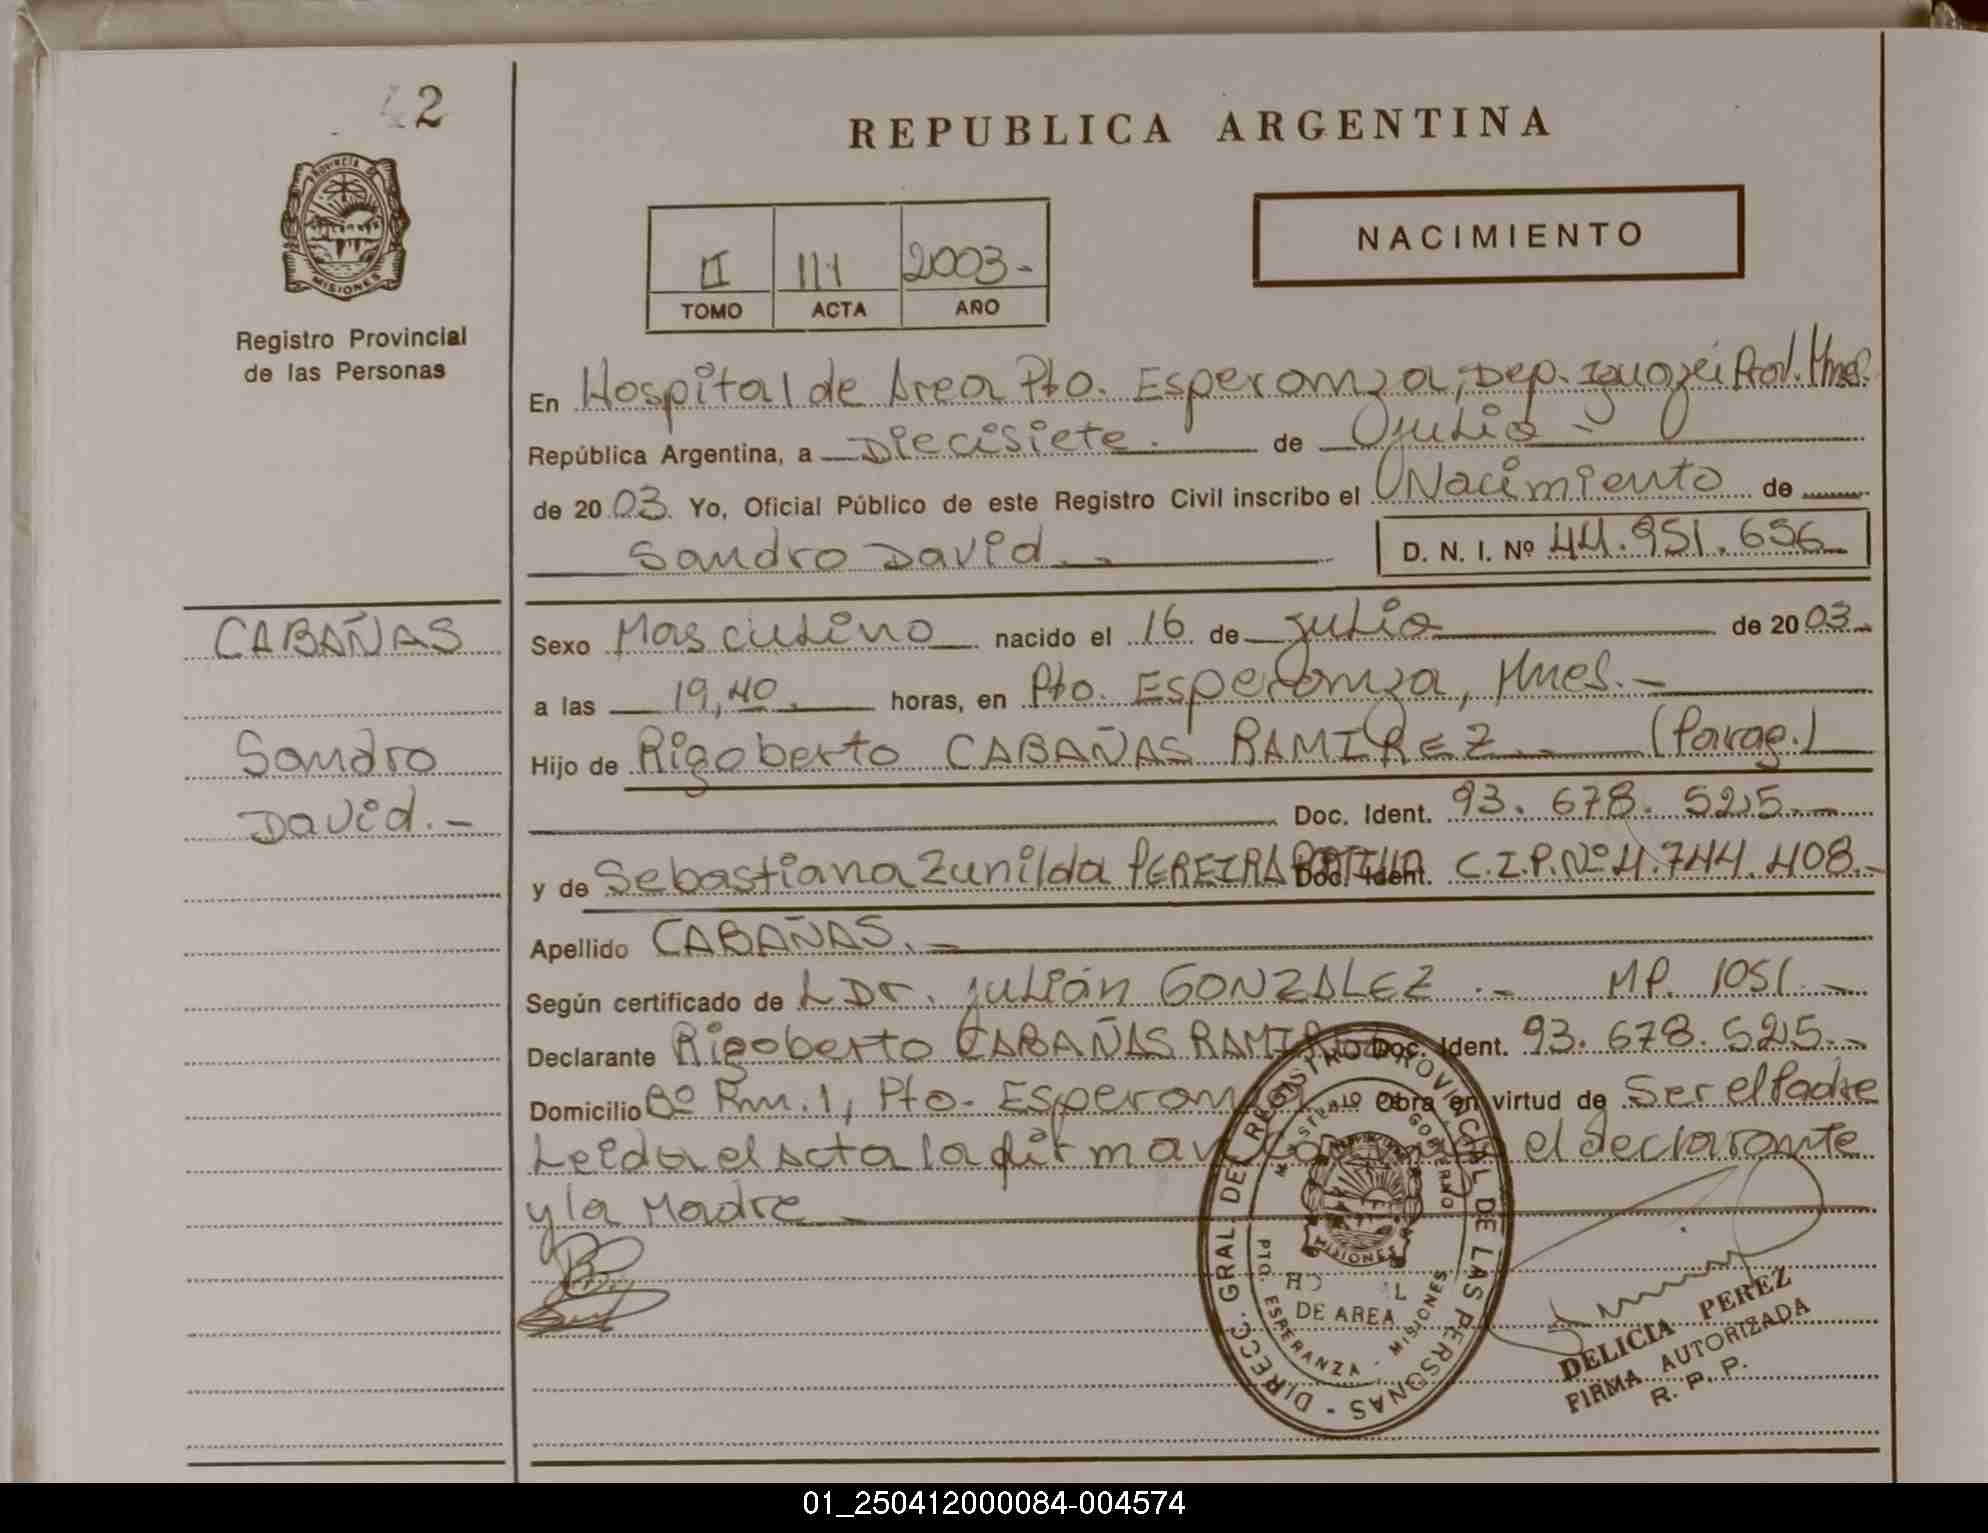 2
REPUBLICA ARGENTINA
PROVINCIA DE
MISIONES
Registro Provincial
de las Personas
II 111 2003.-
TOMO ACTA AÑO
NACIMIENTO
En Hospital de Area Pto. Esperanza, Dep. Iguazú Prov. Mnes.
República Argentina, a Diecisiete. de Julio.-
de 2003. Yo, Oficial Público de este Registro Civil inscribo el Nacimiento de
Sandro David.-
D. N. I. Nº 44.951.656.-
CABAÑAS
Sandro
David.-
Sexo Masculino nacido el 16 de julio de 2003.-
a las 19,40. horas, en Pto. Esperanza, Mnes.-
Hijo de Rigoberto CABAÑAS RAMIREZ.- (Parag.)
Doc. Ident. 93. 678. 525.-
y de Sebastiana Zunilda PEREIRA Doc. Ident. C.I.P.Nº 4.744.408.-
Apellido CABAÑAS.-
Según certificado de L Dr. Julián GONZALEZ.- MP. 1051.-
Declarante Rigoberto CABAÑAS RAMIREZ Doc. Ident. 93. 678. 525.-
Domicilio Bº Km. 1, Pto. Esperanza Obra en virtud de Ser el Padre
Leida el Acta la firman el declarante
y la Madre
DIRECC. GRAL. DEL REGISTRO PROVINCIAL DE LAS PERSONAS -
MINISTERIO DE GOBIERNO
MISIONES
DE AREA
PTO. ESPERANZA - MISIONES
DELICIA PEREZ
FIRMA AUTORIZADA
R. P. P.
01_250412000084-004574